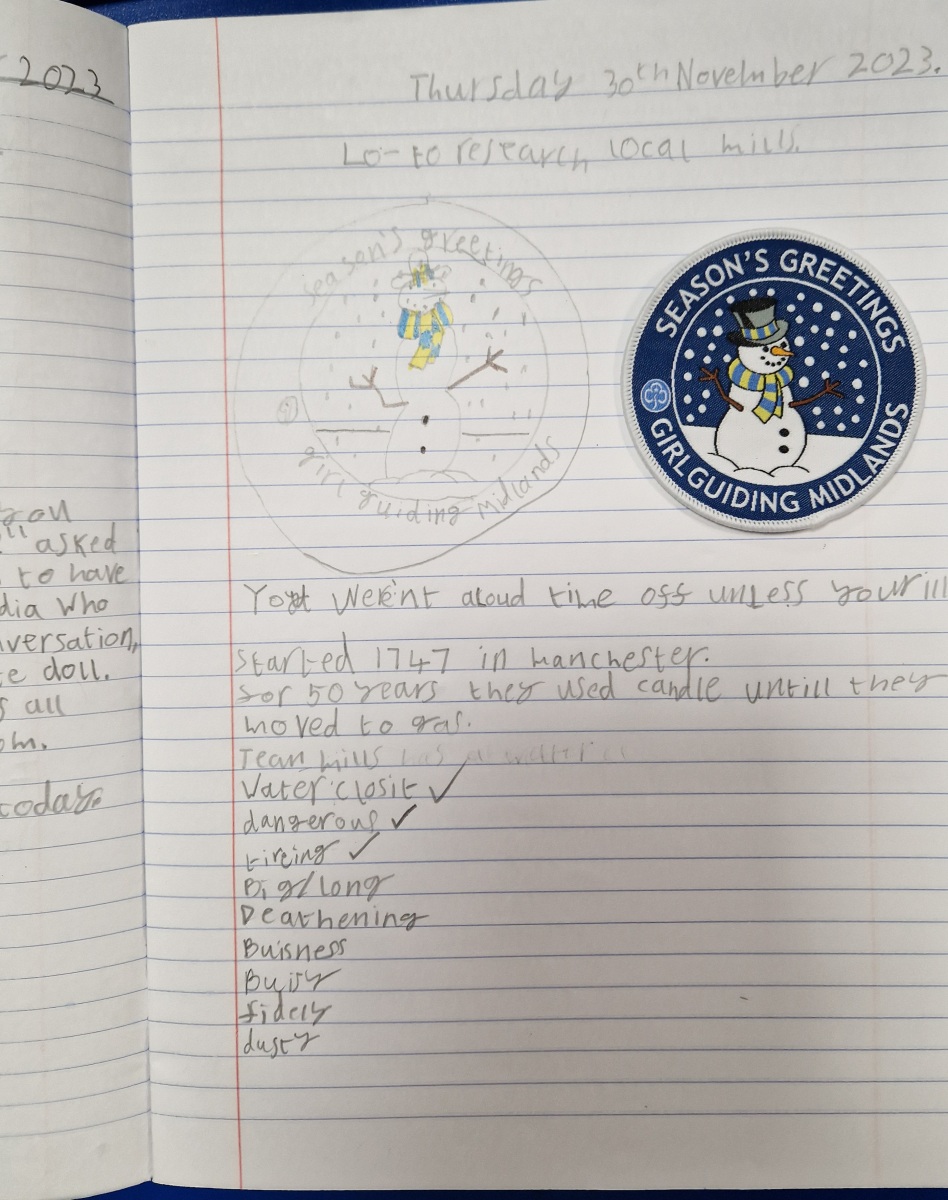 2023
you
asked
to have
dia who
versation,
te doll.
s all
om.
today.
Thursday 30th November 2023.
Lo- to research local mills.
season's greetings
girl guiding midlands
SEASON'S GREETINGS
GIRLGUIDING MIDLANDS
You Weren't aloud time off unless your ill
started 1747 in manchester.
for 50 years they used candle untill they
moved to gas.
Tean mills has a
Water closit ✓
dangerous ✓
tireing ✓
Big/Long
Deathening
Buisness
Buisy
fidely
dusty